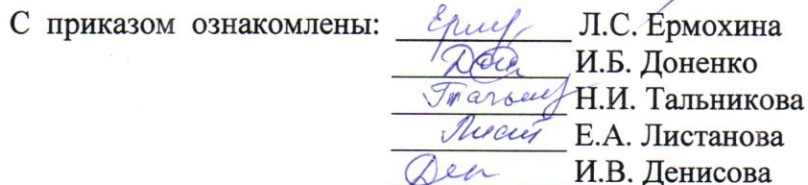 С приказом ознакомлены: Л.С. Ермохина
И.Б. Доненко
Н.И. Тальникова
Е.А. Листанова
И.В. Денисова